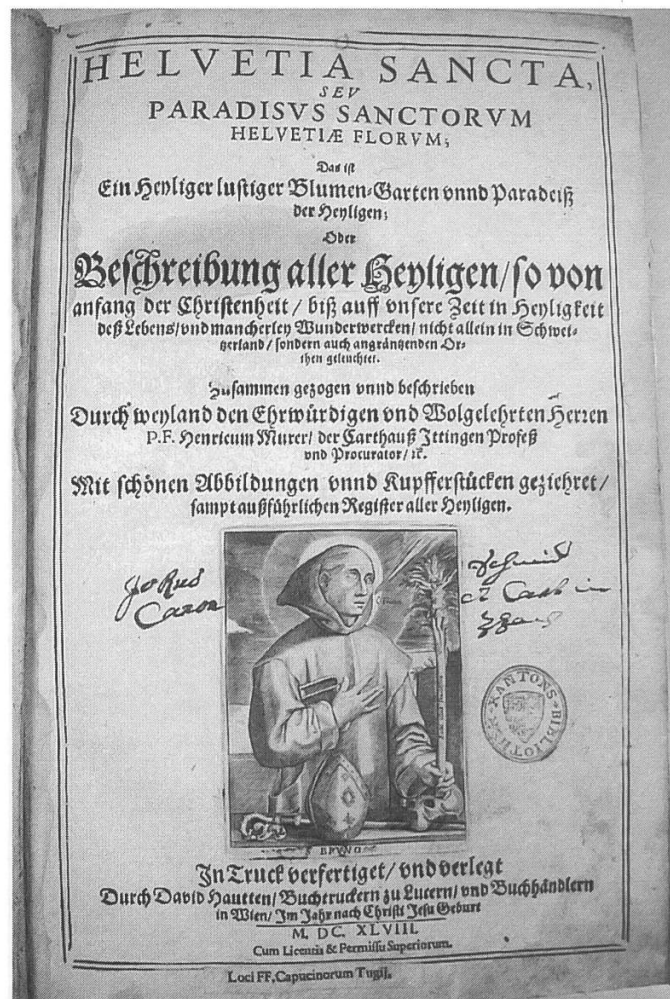 HELVETIA SANCTA,
SEV
PARADISVS SANCTORVM
HELVETIÆ FLORVM;
Das ist
Ein Heyliger lustiger Blumen-Garten vnnd Paradeiß
der Heyligen;
Oder
Beschreibung aller Heyligen/so von
anfang der Christenheit / biß auff vnsere Zeit in Heyligkeit
deß Lebens/vnd mancherley Wunderwercken/ nicht allein in Schwei-
tzerland / sondern auch angräntzenden Or-
then geleuchtet.
Zusammen gezogen vnnd beschrieben
Durch weyland den Ehrwürdigen vnd Wolgelehrten Herren
P.F. Henricum Murer/ der Carthauß Ittingen Profeß
vnd Procurator/ ꝛc.
Mit schönen Abbildungen vnnd Kupfferstücken geziehret/
sampt außführlichen Register aller Heyligen.
KANTONS-BIBLIOTHEK
BRVNO
In Truck verfertiget/ vnd verlegt
Durch David Hautten/ Buchtruckern zu Lucern/ vnd Buchhändlern
in Wien/ Im Jahr nach Christi Jesu Geburt
M. DC. XLVIII.
Cum Licentia & Permissu Superiorum.
Loci FF, Capucinorum Tugij.